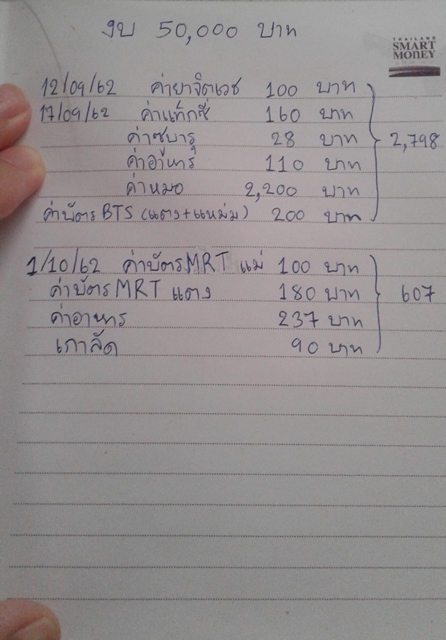 งบ 50,000 บาท
THAILAND
SMART
MONEY
12/09/62 ค่ายาจิตเวช 100 บาท
17/09/62 ค่าแท็กซี่ 160 บาท
ค่าซูบารุ 28 บาท
2,798
ค่าอาหาร 110 บาท
ค่าหมอ 2,200 บาท
ค่าบัตร BTS (แตง+แหม่ม) 200 บาท
1/10/62 ค่าบัตร MRT แม่ 100 บาท
ค่าบัตร MRT แตง 180 บาท
607
ค่าอาหาร 237 บาท
เภสัช 90 บาท